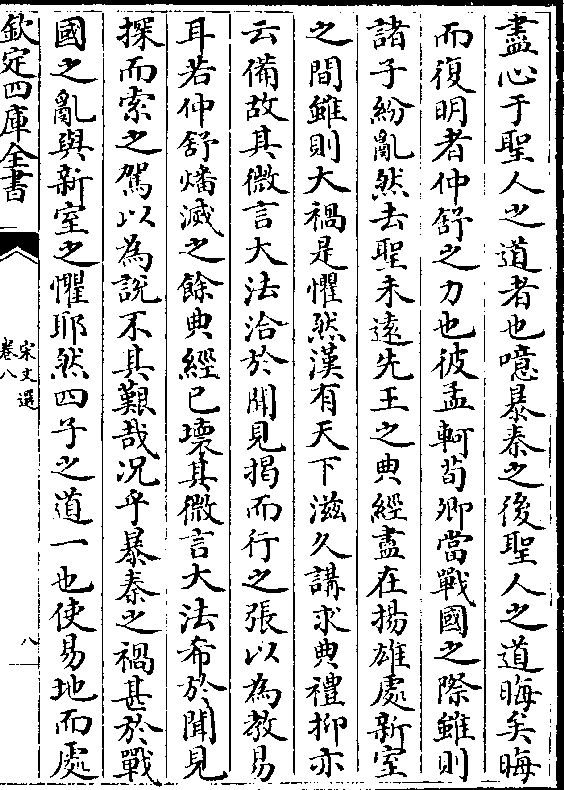 盡心于聖人之道者也噫暴秦之後聖人之道晦矣晦
而復明者仲舒之力也彼孟軻荀卿當戰國之際雖則
諸子紛亂然去聖未遠先王之典經盡在揚雄處新室
之間雖則大禍是懼然漢有天下滋久講求典禮抑亦
云備故其微言大法洽於聞見揭而行之張以為教易
耳若仲舒燔滅之餘典經已壞其微言大法希於聞見
探而索之駕以為說不其艱哉况乎暴秦之禍甚於戰
國之亂與新室之懼耶然四子之道一也使易地而處
欽定四庫全書
宋文選
卷八
八